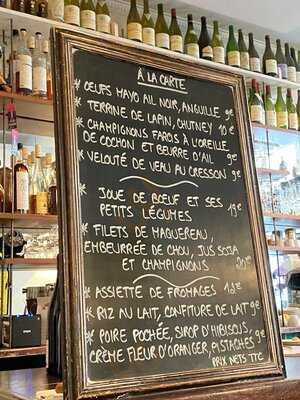 À LA CARTE
* OEUFS MAYO AIL NOIR, ANGUILLE 9€
* TERRINE DE LAPIN, CHUTNEY 10€
* CHAMPIGNONS FARCIS À L'OREILLE
DE COCHON ET BEURRE D'AIL 9€
* VELOUTÉ DE VEAU AU CRESSON 9€
* JOUE DE BOEUF ET SES
PETITS LÉGUMES 19€
* FILETS DE MAQUEREAU,
EMBEURRÉE DE CHOU, JUS SOJA
ET CHAMPIGNONS 20€
* ASSIETTE DE FROMAGES 12€
* RIZ AU LAIT, CONFITURE DE LAIT 9€
* POIRE POCHÉE, SIROP D'HIBISCUS,
CRÈME FLEUR D'ORANGER, PISTACHES 9€
PRIX NETS TTC